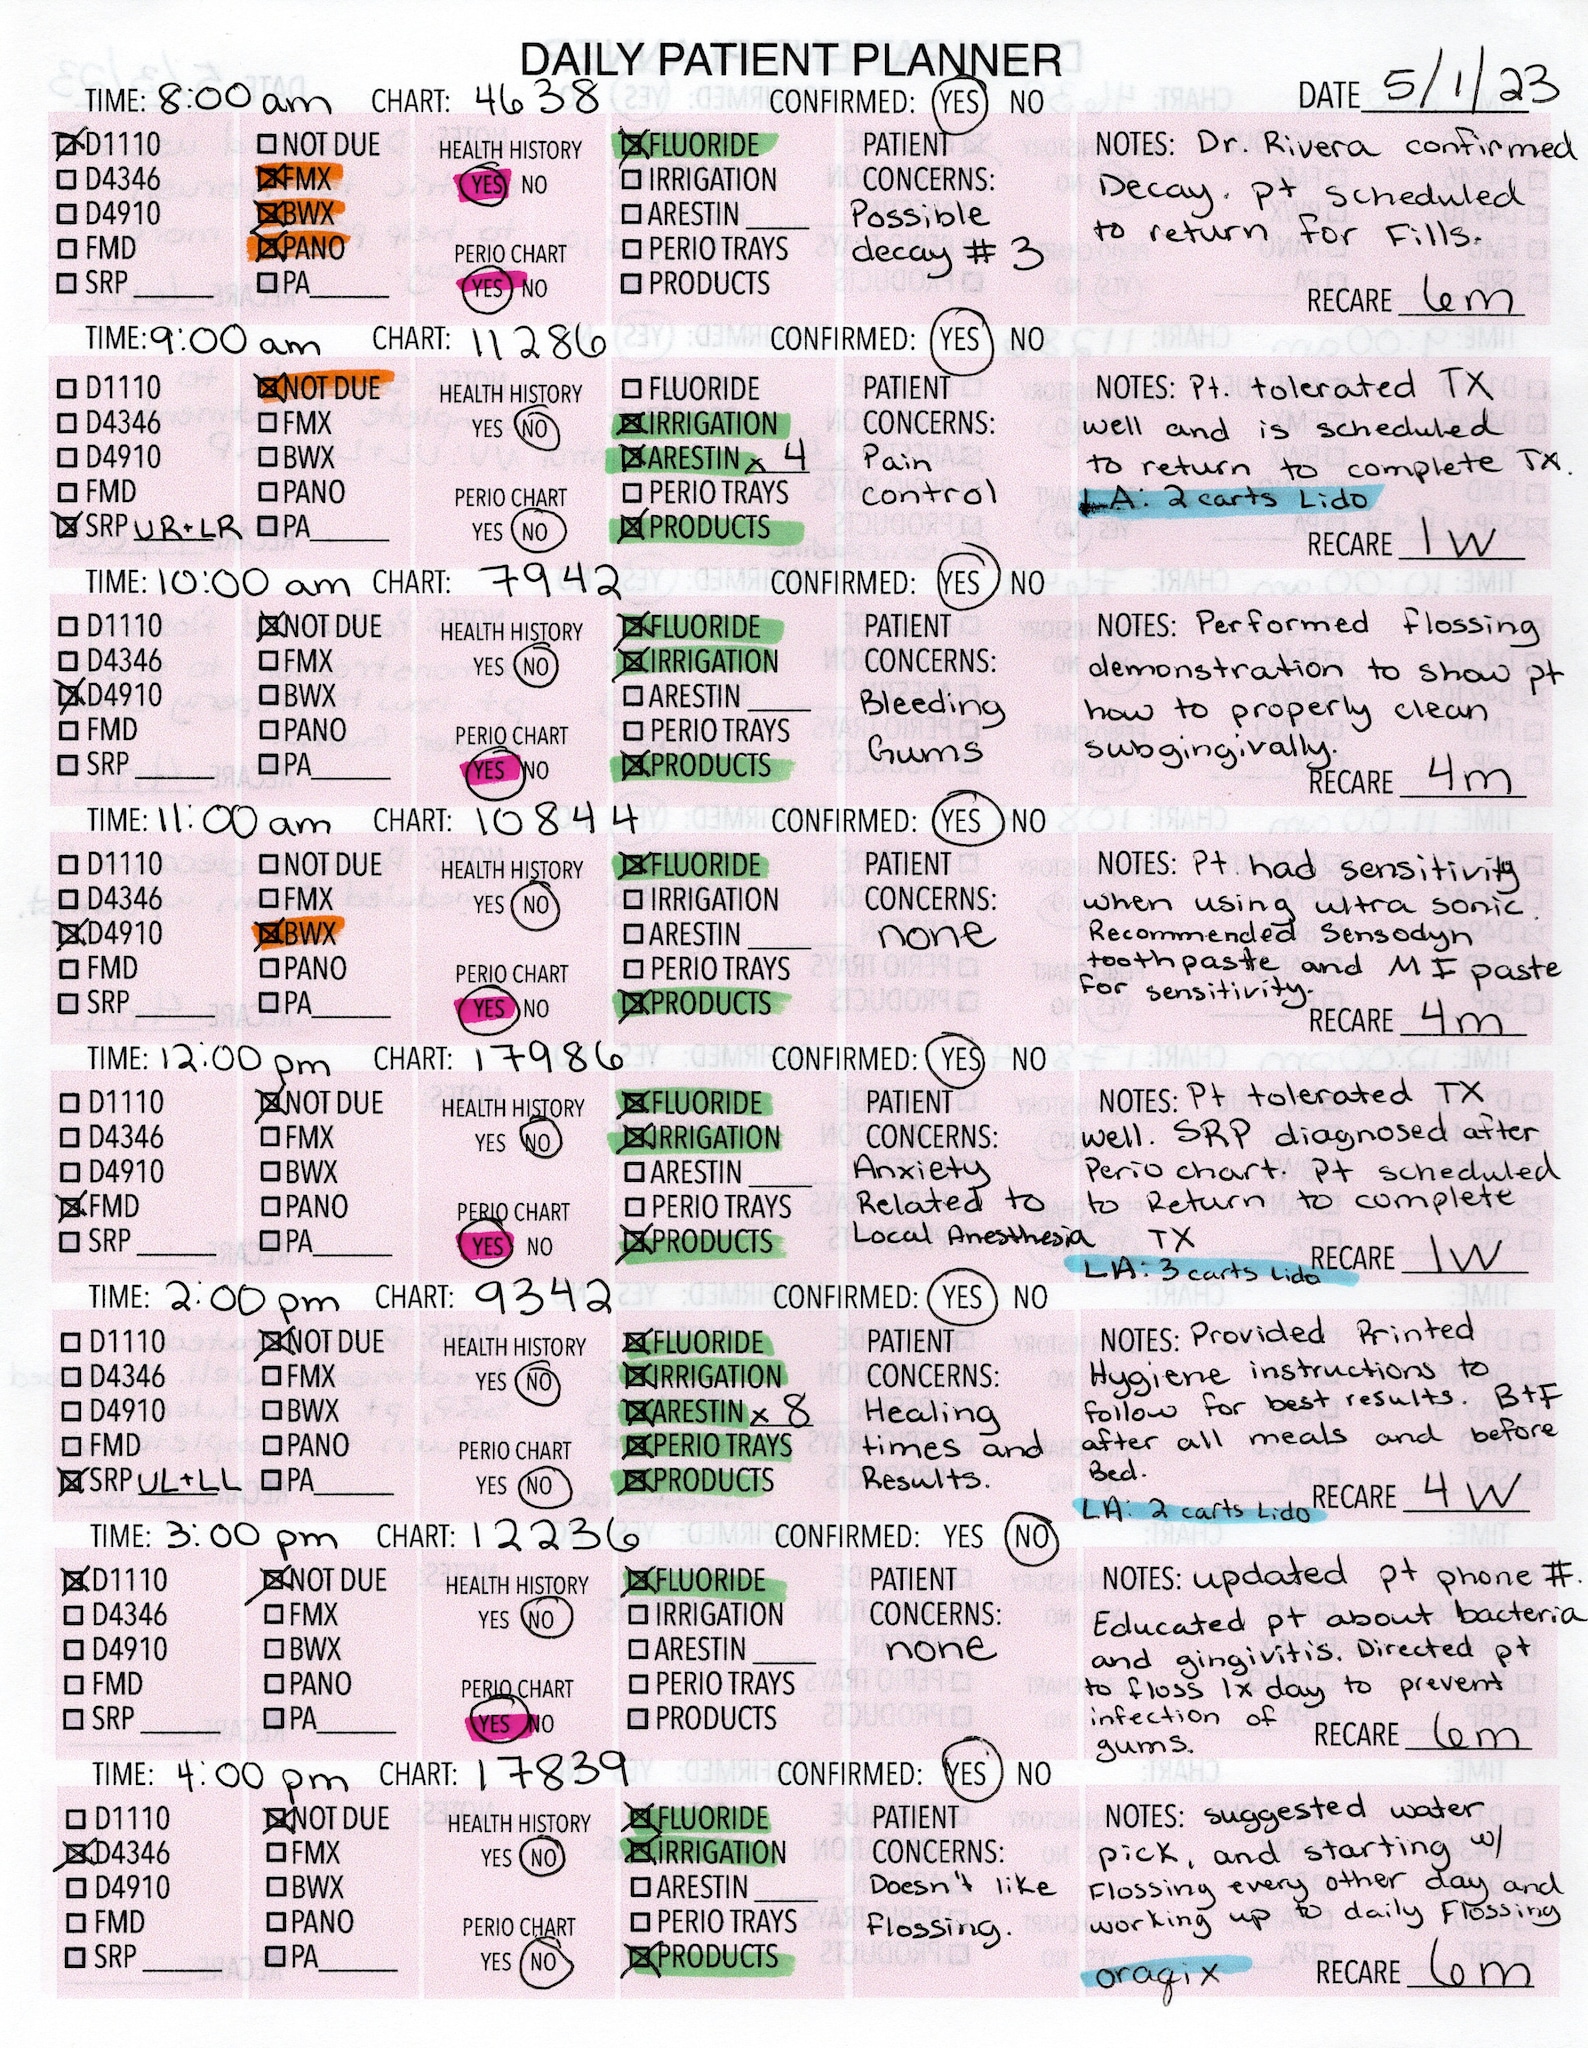 DAILY PATIENT PLANNER
DATE 5/1/23
TIME: 8:00 am CHART: 4638 CONFIRMED: YES NO
D1110 NOT DUE HEALTH HISTORY FLUORIDE PATIENT NOTES: Dr. Rivera confirmed
D4346 FMX YES NO IRRIGATION CONCERNS: Decay. pt scheduled
D4910 BWX ARESTIN Possible to return for Fills.
FMD PANO PERIO CHART PERIO TRAYS decay # 3
SRP PA YES NO PRODUCTS RECARE 6m
TIME: 9:00 am CHART: 11286 CONFIRMED: YES NO
D1110 NOT DUE HEALTH HISTORY FLUORIDE PATIENT NOTES: Pt. tolerated TX
D4346 FMX YES NO IRRIGATION CONCERNS: well and is scheduled
D4910 BWX ARESTIN x 4 Pain to return to complete TX.
FMD PANO PERIO CHART PERIO TRAYS control LA: 2 carts Lido
SRP UR+LR PA YES NO PRODUCTS RECARE 1W
TIME: 10:00 am CHART: 7942 CONFIRMED: YES NO
D1110 NOT DUE HEALTH HISTORY FLUORIDE PATIENT NOTES: Performed flossing
D4346 FMX YES NO IRRIGATION CONCERNS: demonstration to show pt
D4910 BWX ARESTIN Bleeding how to properly clean
FMD PANO PERIO CHART PERIO TRAYS Gums subgingivally.
SRP PA YES NO PRODUCTS RECARE 4m
TIME: 11:00 am CHART: 10844 CONFIRMED: YES NO
D1110 NOT DUE HEALTH HISTORY FLUORIDE PATIENT NOTES: Pt had sensitivity
D4346 FMX YES NO IRRIGATION CONCERNS: when using ultra sonic.
D4910 BWX ARESTIN none Recommended Sensodyn
FMD PANO PERIO CHART PERIO TRAYS toothpaste and MI paste
SRP PA YES NO PRODUCTS for sensitivity. RECARE 4m
TIME: 12:00 pm CHART: 17986 CONFIRMED: YES NO
D1110 NOT DUE HEALTH HISTORY FLUORIDE PATIENT NOTES: Pt tolerated TX
D4346 FMX YES NO IRRIGATION CONCERNS: well. SRP diagnosed after
D4910 BWX ARESTIN Anxiety Perio chart. Pt scheduled
FMD PANO PERIO CHART PERIO TRAYS Related to to Return to complete
SRP PA YES NO PRODUCTS Local Anesthesia TX RECARE 1W
LA: 3 carts Lido
TIME: 2:00 pm CHART: 9342 CONFIRMED: YES NO
D1110 NOT DUE HEALTH HISTORY FLUORIDE PATIENT NOTES: Provided Printed
D4346 FMX YES NO IRRIGATION CONCERNS: Hygiene instructions to
D4910 BWX ARESTIN x 8 Healing follow for best results. B+F
FMD PANO PERIO CHART PERIO TRAYS times and after all meals and before
SRP UL+LL PA YES NO PRODUCTS Results. Bed. RECARE 4W
LA: 2 carts Lido
TIME: 3:00 pm CHART: 12236 CONFIRMED: YES NO
D1110 NOT DUE HEALTH HISTORY FLUORIDE PATIENT NOTES: updated pt phone #.
D4346 FMX YES NO IRRIGATION CONCERNS: Educated pt about bacteria
D4910 BWX ARESTIN none and gingivitis. Directed pt
FMD PANO PERIO CHART PERIO TRAYS to floss 1x day to prevent
SRP PA YES NO PRODUCTS infection of RECARE 6m
gums.
TIME: 4:00 pm CHART: 17839 CONFIRMED: YES NO
D1110 NOT DUE HEALTH HISTORY FLUORIDE PATIENT NOTES: suggested water
D4346 FMX YES NO IRRIGATION CONCERNS: pick, and starting w/
D4910 BWX ARESTIN Doesn't like Flossing every other day and
FMD PANO PERIO CHART PERIO TRAYS flossing. working up to daily Flossing
SRP PA YES NO PRODUCTS oraqix RECARE 6m